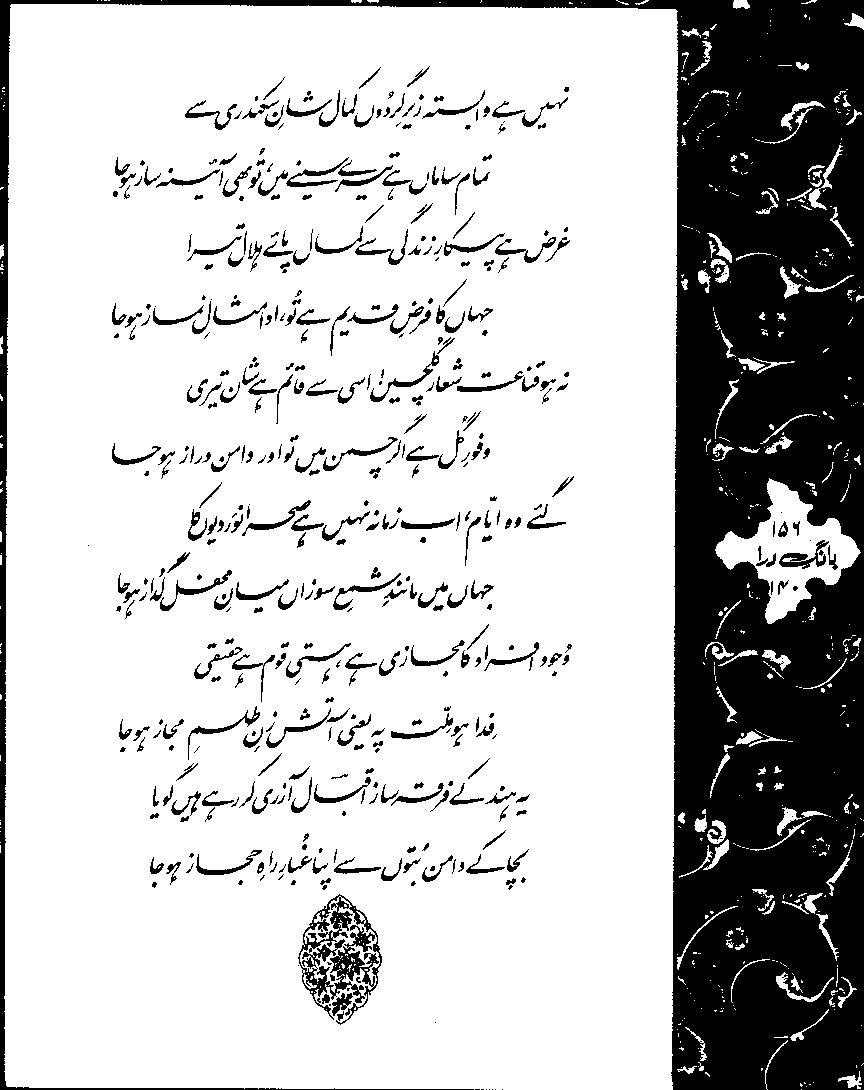 نہیں ہے وابستہ زیرِ گردُوں کمال شانِ سکندری سے
تمام ساماں ہے تیرے سینے میں، تُو بھی آئینہ ساز ہو جا
غرض ہے پیکارِ زندگی سے کمال پائے ہلال تیرا
جہاں کا فرضِ قدیم ہے تُو، ادا مثالِ نماز ہو جا
نہ ہو قناعت شعار گُلچیں! اسی سے قائم ہے شان تیری
وفورِ گُل ہے اگر چمن میں تو اور دامن دراز ہو جا
گئے وہ ایّام، اب زمانہ نہیں ہے صحرانوَردیوں کا
جہاں میں مانندِ شمعِ سوزاں میانِ محفل گداز ہو جا
وُجود افراد کا مجازی ہے، ہستیِ قوم ہے حقیقی
فِدا ہو مِلّت پہ یعنی آتش زنِ طلسمِ مجاز ہو جا
یہ ہند کے فرقہ ساز اقبالؔ آزری کر رہے ہیں گویا
بچا کے دامن بُتوں سے اپنا غُبارِ راہِ حجاز ہو جا
۱۵۶
بانگِ درا
۱۴۰